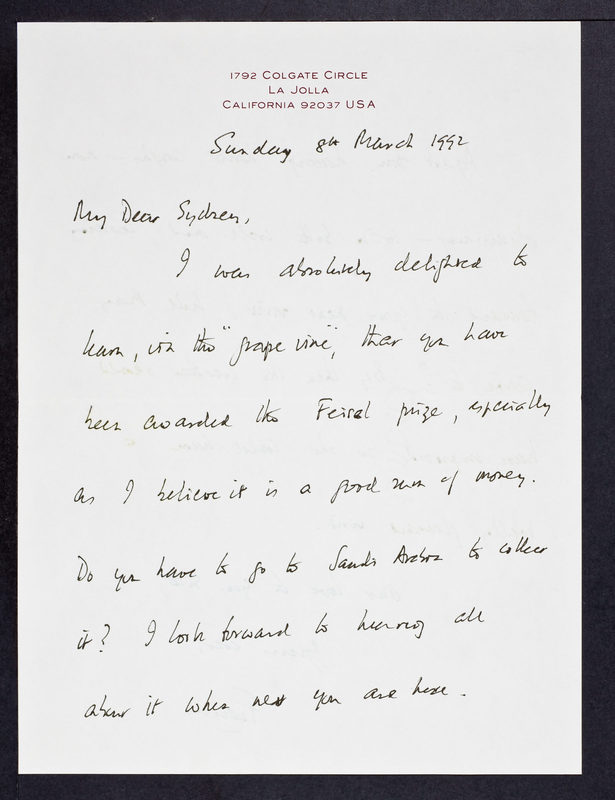 1792 COLGATE CIRCLE
LA JOLLA
CALIFORNIA 92037 USA
Sunday 8th March 1992
My Dear Sydney,
I was absolutely delighted to
learn, via the "grape vine", that you have
been awarded the Feisal prize, especially
as I believe it is a good sum of money.
Do you have to go to Saudi Arabia to collect
it? I look forward to hearing all
about it when next you are here.